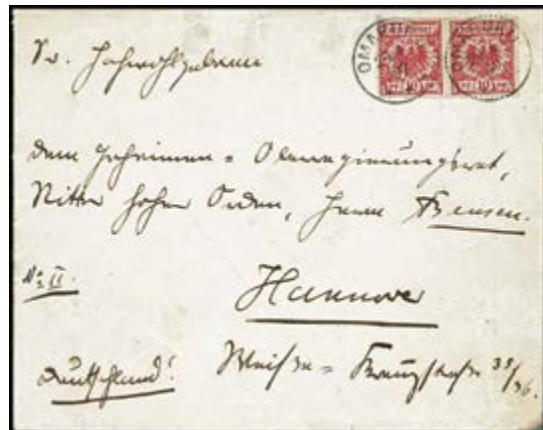 OMARURU OMARURU
10 10
Sr. Hochwohlgeboren
dem Geheimen = Oberregierungsrat,
Ritter hoher Orden, Herrn Bensen.
No II.
Hannover
Deutschland! Weiße = Kreuzstraße 35/36.